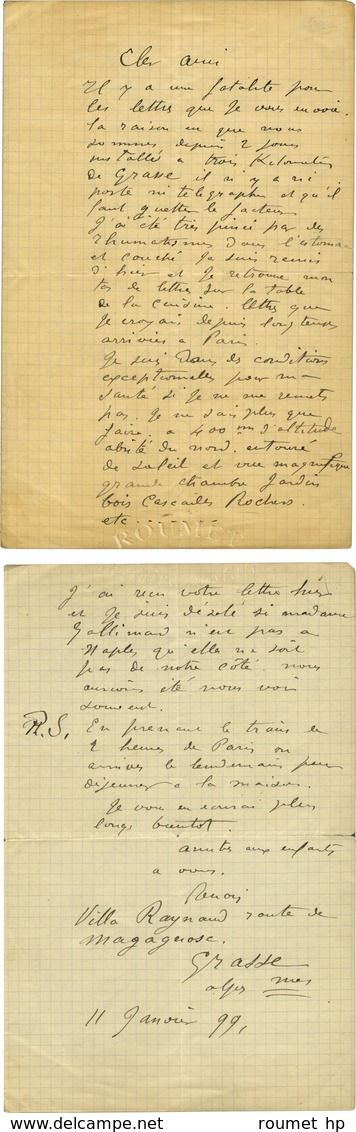 Cher ami
Il y a une fatalité pour
les lettres que je vous envoie.
la raison en que nous
sommes depuis 2 jours
installés a trois Kilomètres
de Grasse il n'y a ni
poste ni telegraphe et qu'il
faut guetter le facteur
J'ai été très pincé par des
rhumatismes dans l'estomac
et couché Je suis remis
d'hier et je retrouve mon
tas de lettres sur la table
de la cuisine. lettres que
je croyais depuis longtemps
arrivées a Paris.
Je suis dans des conditions
exceptionnelles pour ma
santé si je ne me remets
pas. Je ne sais plus que
faire. a 400 m d'altitude
abrité du nord. entouré
de soleil et vue magnifique
grande chambre Jardin
bois Cascades Rochers.
etc
ROUMET
J'ai reçu votre lettre hier
et je suis désolé si madame
Gallimard n'est pas a
Naples qu'elle ne soit
pas de notre coté. nous
aurions été nous voir
souvent.
P.S. En prenant le train de
2 heures de Paris on
arrive le lendemain pour
déjeuner a la maison.
Je vous en écrirai plus
long bientot.
amitiés aux enfants
a vous.
Renoir
Villa Raynaud route de
Magagnosc.
Grasse
alpes mes
11 Janvier 99,
roumet hp
© roumet hp